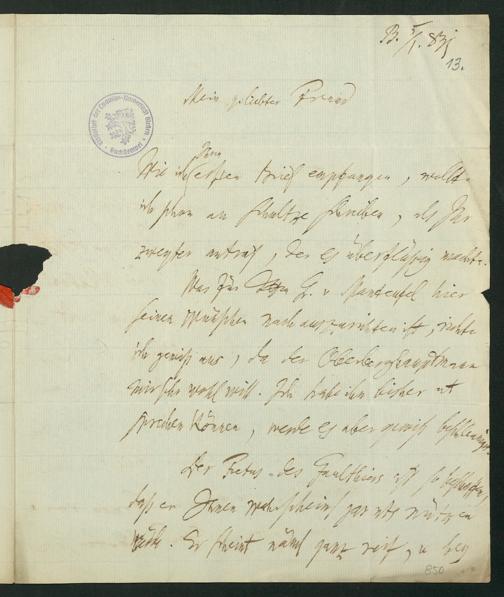 B. 5/1. 83
13.
Mein geliebter Freund
Wie ich Ihren
ersten Brief empfangen, wollte
ich schon an Schultze schreiben, als Ihr
zweyter antraf, der es überflüssig machte.
Was für H. v. Manteufel hier
seinen Wünschen nach auszurichten ist, richte
ich gewiß aus, da der Oberberghauptmann
mir sehr wohl will. Ich habe ihn bisher nt
sprechen können, werde es aber gewiß
Der Fretus des Gaulthiers ist so
daß er Ihnen wahrscheinl gar nts nützen
würde. Er scheint näml ganz reif, u
850